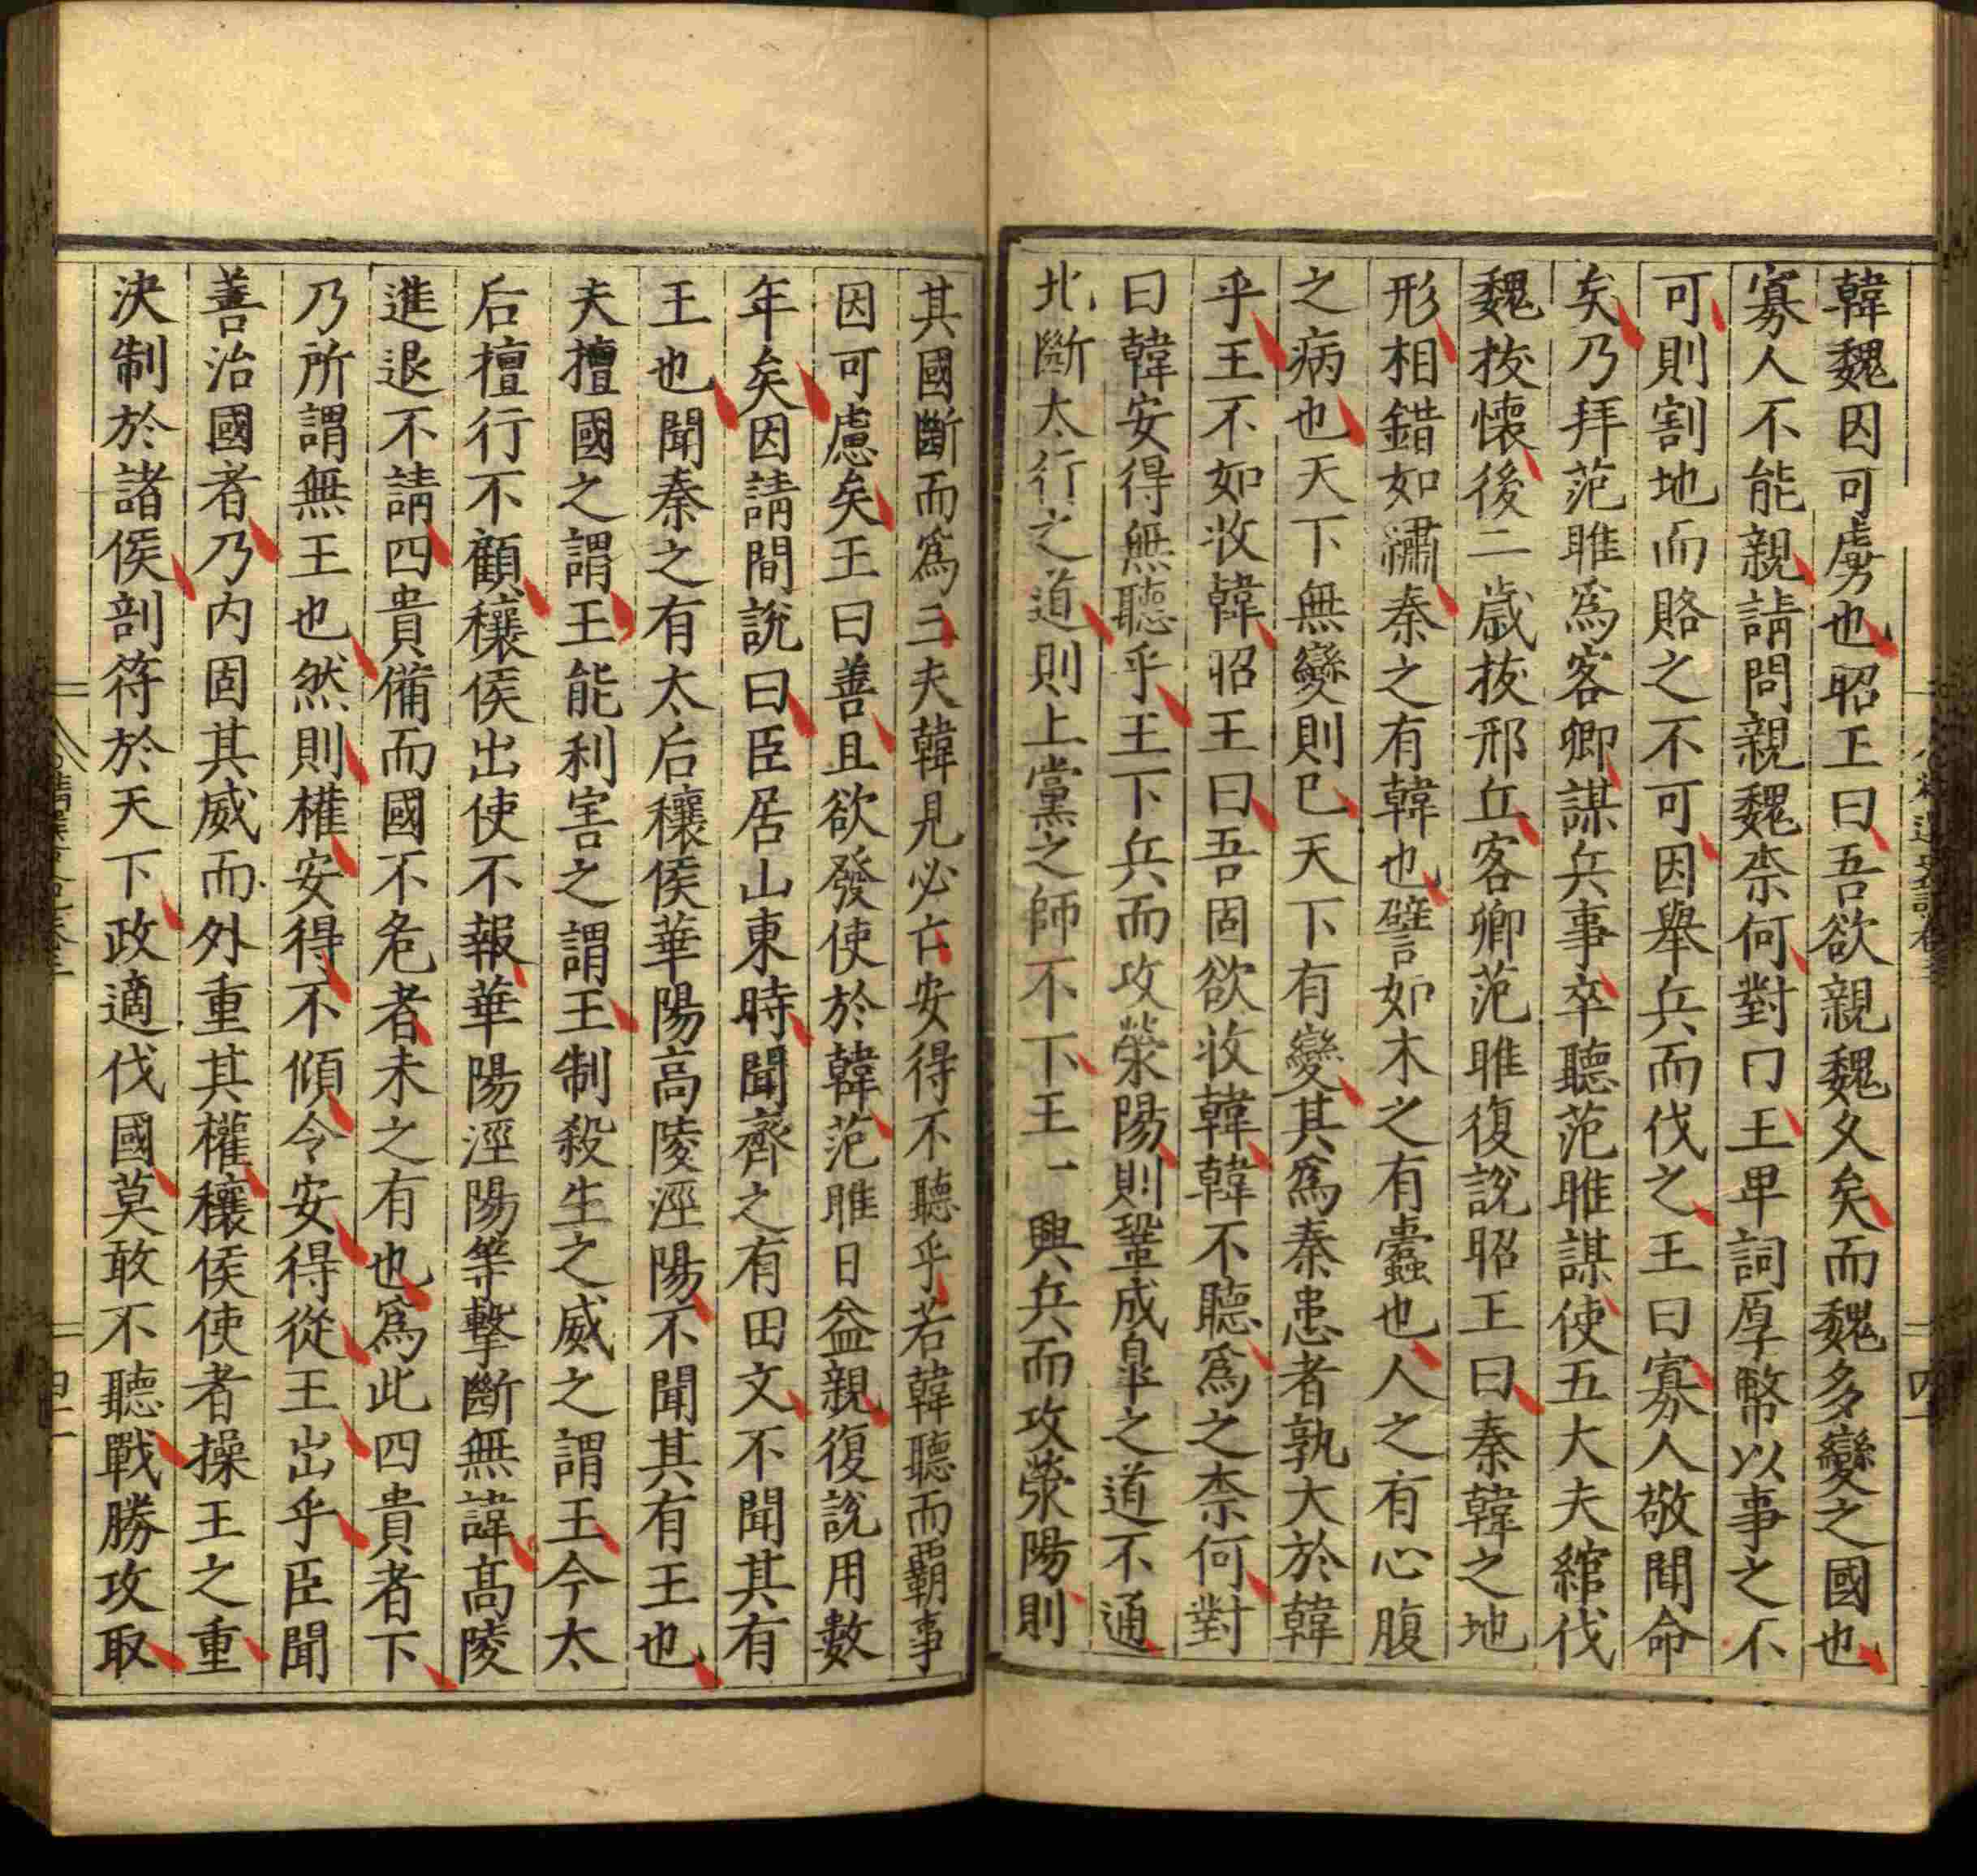 韓魏因可虜也昭王曰吾欲親魏久矣而魏多變之國也
寡人不能親請問親魏柰何對曰王卑詞厚幣以事之不
可則割地而賂之不可因舉兵而伐之王曰寡人敬聞命
矣乃拜范雎爲客卿謀兵事卒聽范雎謀使五大夫綰伐
魏拔懷後二歲拔邢丘客卿范雎復說昭王曰秦韓之地
形相錯如繡秦之有韓也譬如木之有蠹也人之有心腹
之病也天下無變則已天下有變其爲秦患者孰大於韓
乎王不如收韓昭王曰吾固欲收韓韓不聽爲之柰何對
曰韓安得無聽乎王下兵而攻滎陽則鞏成皐之道不通
北斷太行之道則上黨之師不下王一興兵而攻滎陽則
其國斷而爲三夫韓見必亡安得不聽乎若韓聽而霸事
因可慮矣王曰善且欲發使於韓范雎日益親復說用數
年矣因請間說曰臣居山東時聞齊之有田文不聞其有
王也聞秦之有太后穰侯華陽高陵涇陽不聞其有王也
夫擅國之謂王能利害之謂王制殺生之威之謂王今太
后擅行不顧穰侯出使不報華陽涇陽等擊斷無諱高陵
進退不請四貴備而國不危者未之有也爲此四貴者下
乃所謂無王也然則權安得不傾令安得從王出乎臣聞
善治國者乃内固其威而外重其權穰侯使者操王之重
決制於諸侯剖符於天下政適伐國莫敢不聽戰勝攻取